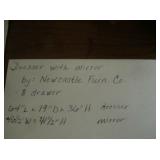 Dresser with mirror
by: Newcastle Furn. Co.
8 drawer
64"L x 19"D x 36"H dresser
48½"W x 41½"H mirror